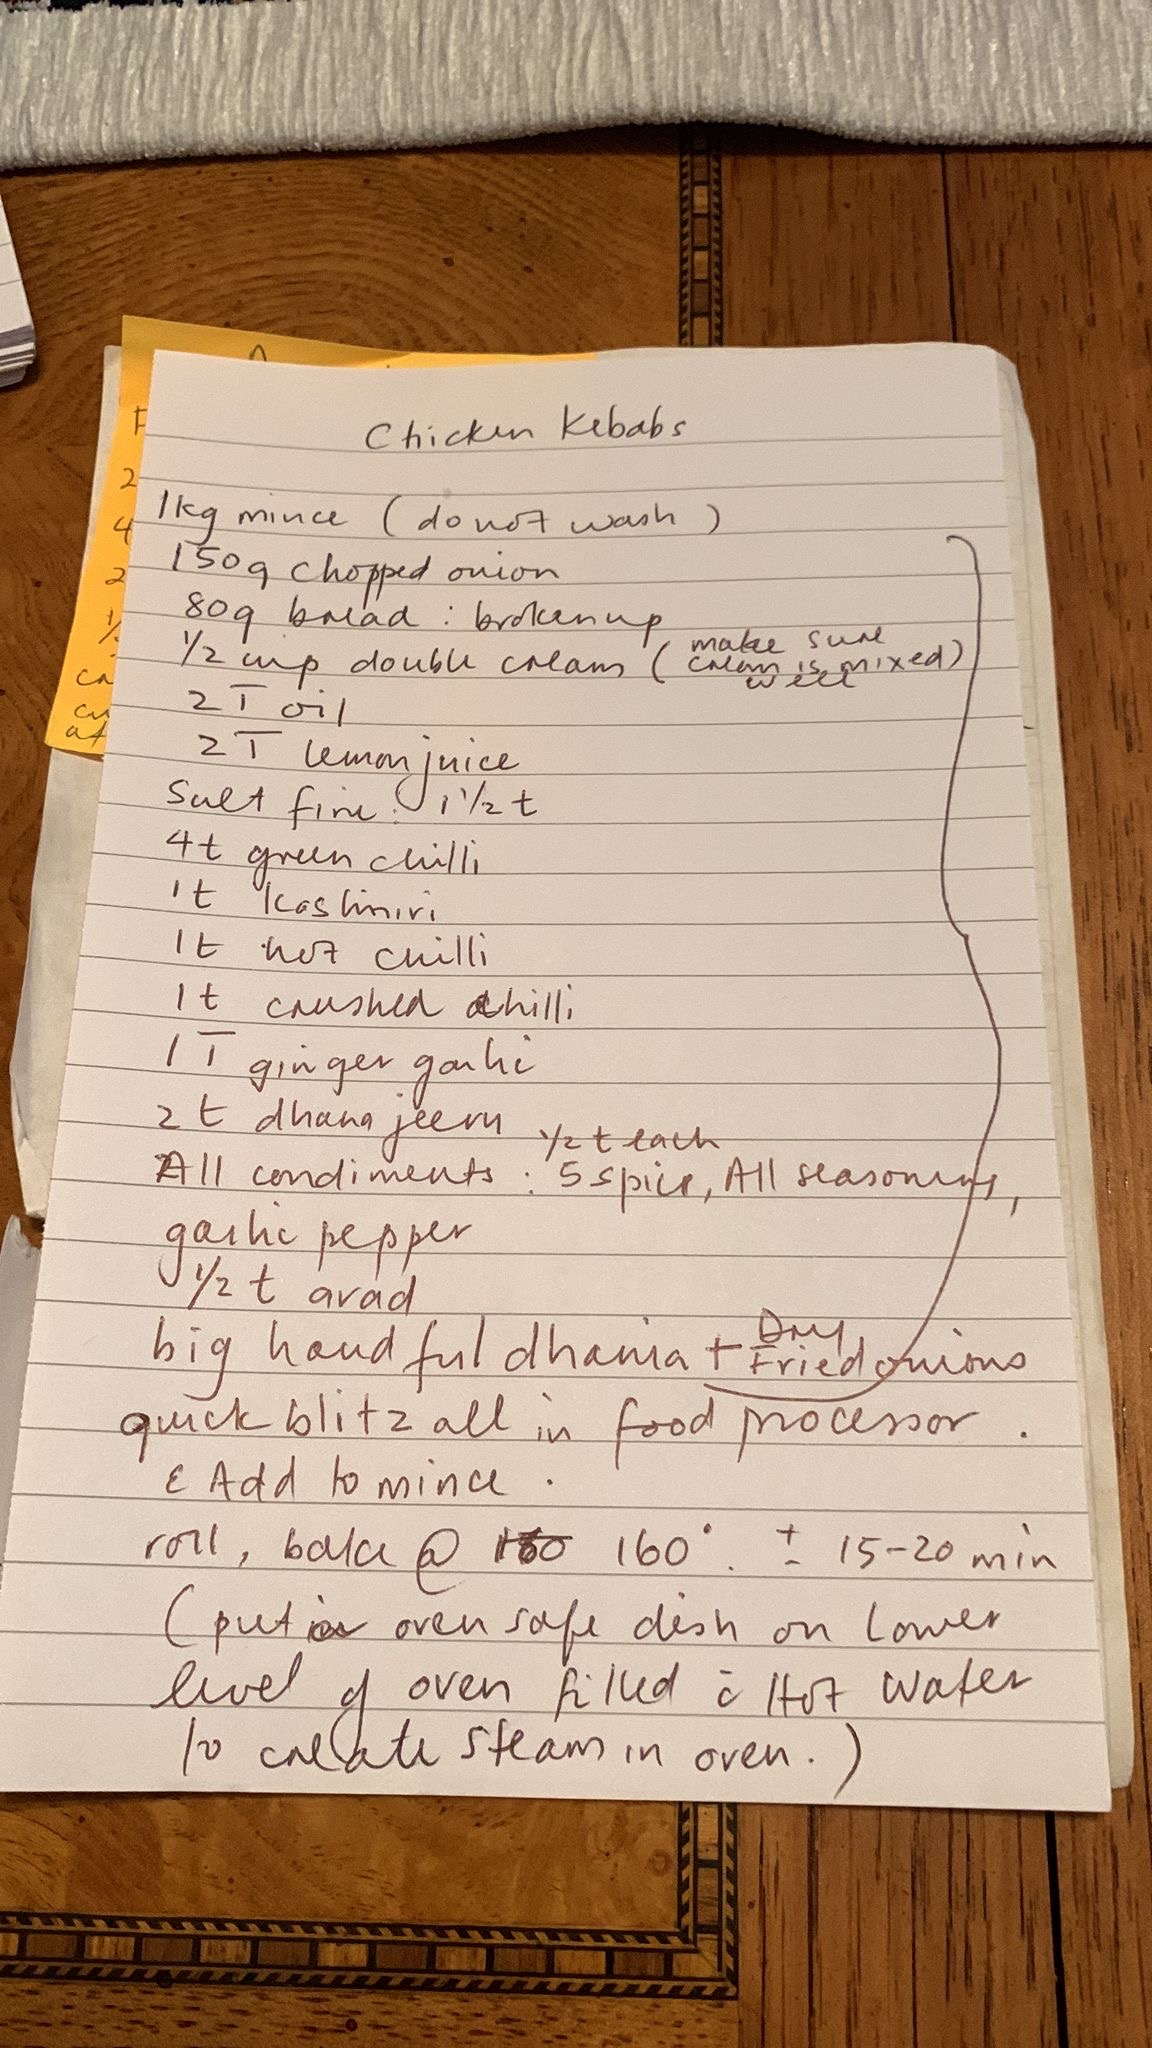 Chicken Kebabs
1kg mince (do not wash)
150g chopped onion
80g bread : broken up
1/2 cup double cream (make sure cream is mixed well)
2T oil
2T lemon juice
Salt fine : 1 1/2 t
4t green chilli
1t kashmiri
1t hot chilli
1t crushed chilli
1T ginger garlic
2t dhana jeeru
1/2 t each
All condiments : 5 spice, All seasoning,
garlic pepper
1/2 t arad
big handful dhania + Dry Fried onions
quick blitz all in food processor .
& Add to mince .
roll, bake @ 160° . ± 15-20 min
(put a oven safe dish on lower
level of oven filled c̄ Hot Water
to create steam in oven.)
F
2
4
2
1/2